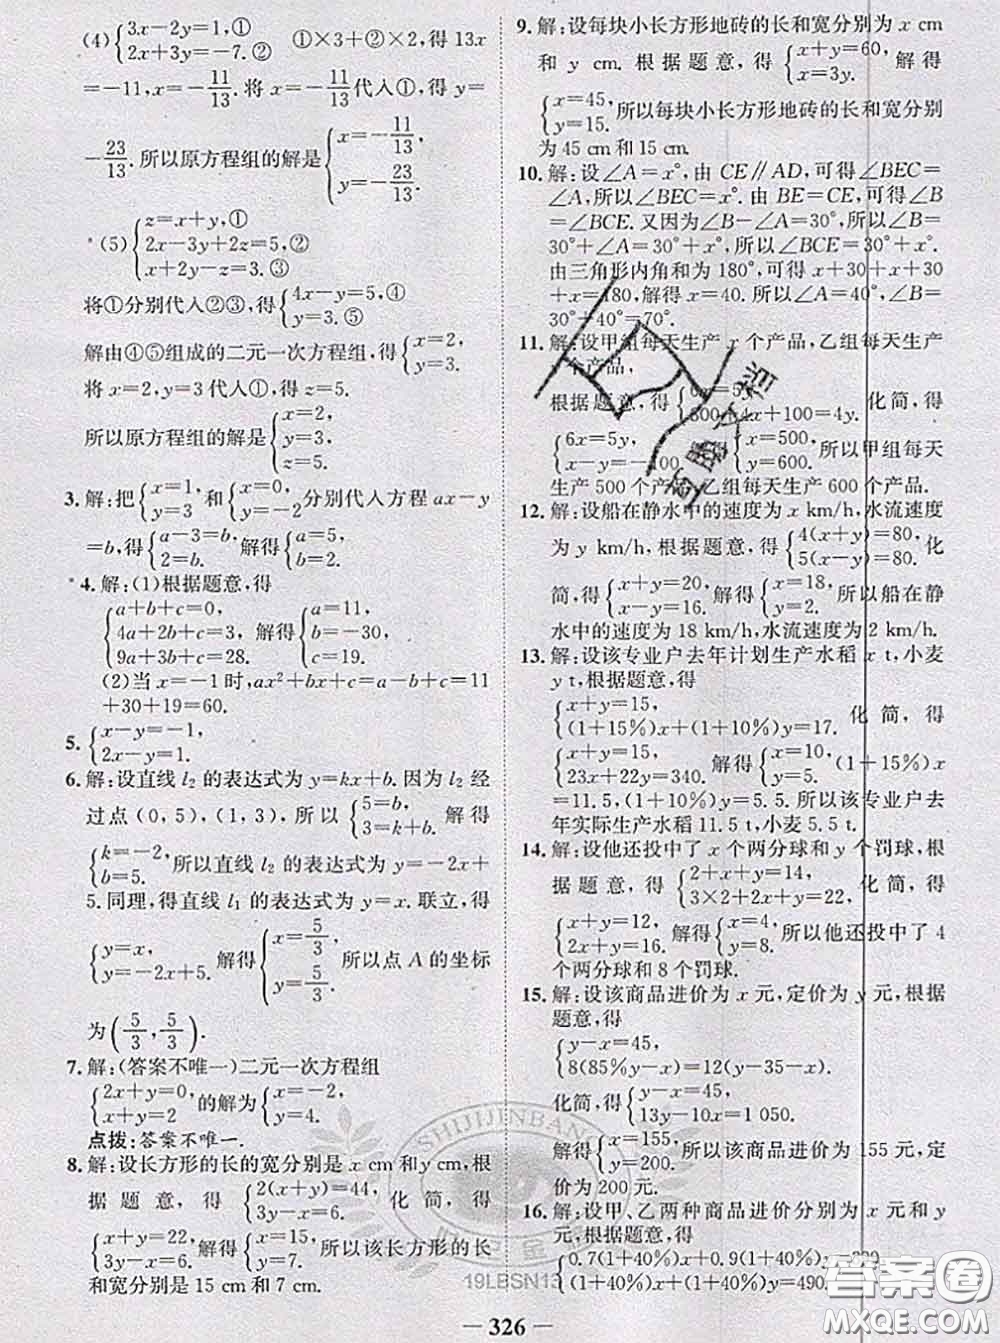 (4){3x-2y=1,① 2x+3y=-7.② ①×3+②×2,得 13x
=-11,x=-11/13.将 x=-11/13代入①,得 y=
-23/13.所以原方程组的解是{x=-11/13, y=-23/13.
(5){z=x+y,① 2x-3y+2z=5,② x+2y-z=3.③
将①分别代入②③,得{4x-y=5,④ y=3.⑤
解由④⑤组成的二元一次方程组,得{x=2, y=3.
将 x=2,y=3代入①,得 z=5.
所以原方程组的解是{x=2, y=3, z=5.
3.解:把{x=1, y=3 和{x=0, y=-2 分别代入方程 ax-y
=b,得{a-3=b, 2=b. 解得{a=5, b=2.
4.解:(1)根据题意,得
{a+b+c=0, 4a+2b+c=3, 9a+3b+c=28. 解得{a=11, b=-30, c=19.
(2)当 x=-1时,ax²+bx+c=a-b+c=11
+30+19=60.
5.{x-y=-1, 2x-y=1.
6.解:设直线 l₂ 的表达式为 y=kx+b.因为 l₂ 经
过点(0,5),(1,3),所以{5=b, 3=k+b. 解得
{k=-2, b=5. 所以直线 l₂ 的表达式为 y=-2x+
5.同理,得直线 l₁ 的表达式为 y=x.联立,得
{y=x, y=-2x+5. 解得{x=5/3, y=5/3. 所以点 A 的坐标
为(5/3,5/3).
7.解:(答案不唯一)二元一次方程组
{2x+y=0, x+y=2 的解为{x=-2, y=4.
点拨:答案不唯一.
8.解:设长方形的长的宽分别是 x cm 和 y cm,根
据题意,得{2(x+y)=44, 3y-x=6. 化简,得
{x+y=22, 3y-x=6. 解得{x=15, y=7. 所以该长方形的长
和宽分别是 15 cm 和 7 cm.
9.解:设每块小长方形地砖的长和宽分别为 x cm
和 y cm.根据题意,得{x+y=60, x=3y. 解得
{x=45, y=15. 所以每块小长方形地砖的长和宽分别
为 45 cm 和 15 cm.
10.解:设∠A=x°,由 CE∥AD,可得∠BEC=
∠A,所以∠BEC=x°.由 BE=CE,可得∠B
=∠BCE.又因为∠B-∠A=30°,所以∠B=
30°+∠A=30°+x°,所以∠BCE=30°+x°.
由三角形内角和为 180°,可得 x+30+x+30
+x=180,解得 x=40.所以∠A=40°,∠B=
30°+40°=70°.
11.解:设甲组每天生产 x 个产品,乙组每天生产
个产品,
根据题意,得 300+4x+100=4y. 化简,得
{6x=5y, {x=500, y=600. 所以甲组每天
生产 500 个产 乙组每天生产 600 个产品.
12.解:设船在静水中的速度为 x km/h,水流速度
为 y km/h,根据题意,得{4(x+y)=80, 5(x-y)=80. 化
简,得{x+y=20, x-y=16. 解得{x=18, y=2. 所以船在静
水中的速度为 18 km/h,水流速度为 2 km/h.
13.解:设该专业户去年计划生产水稻 x t,小麦
y t,根据题意,得
{x+y=15, (1+15%)x+(1+10%)y=17. 化简,得
{x+y=15, 23x+22y=340. 解得{x=10, y=5. (1+15%)x
=11.5,(1+10%)y=5.5.所以该专业户去
年实际生产水稻 11.5 t,小麦 5.5 t.
14.解:设他还投中了 x 个两分球和 y 个罚球,根
据题意,得{2+x+y=14, 3×2+2x+y=22. 化简,得
{x+y=12, 2x+y=16. 解得{x=4, y=8. 所以他还投中了 4
个两分球和 8 个罚球.
15.解:设该商品进价为 x 元,定价为 y 元,根据
题意,得
{y-x=45, 8(85%y-x)=12(y-35-x).
化简,得{y-x=45, 13y-10x=1 050.
解得{x=155, y=200. 所以该商品进价为 155 元,定
价为 200 元.
16.解:设甲、乙两种商品进价分别为 x 元和 y
元,根据题意,得
{(1+40%)x+(1+40%)y=490,
0.7(1+40%)x+0.9(1+40%)y=
SHIJIJINBANG
金
19LBSN13
— 326 —
百度文档
答案圈
MXQE.COM